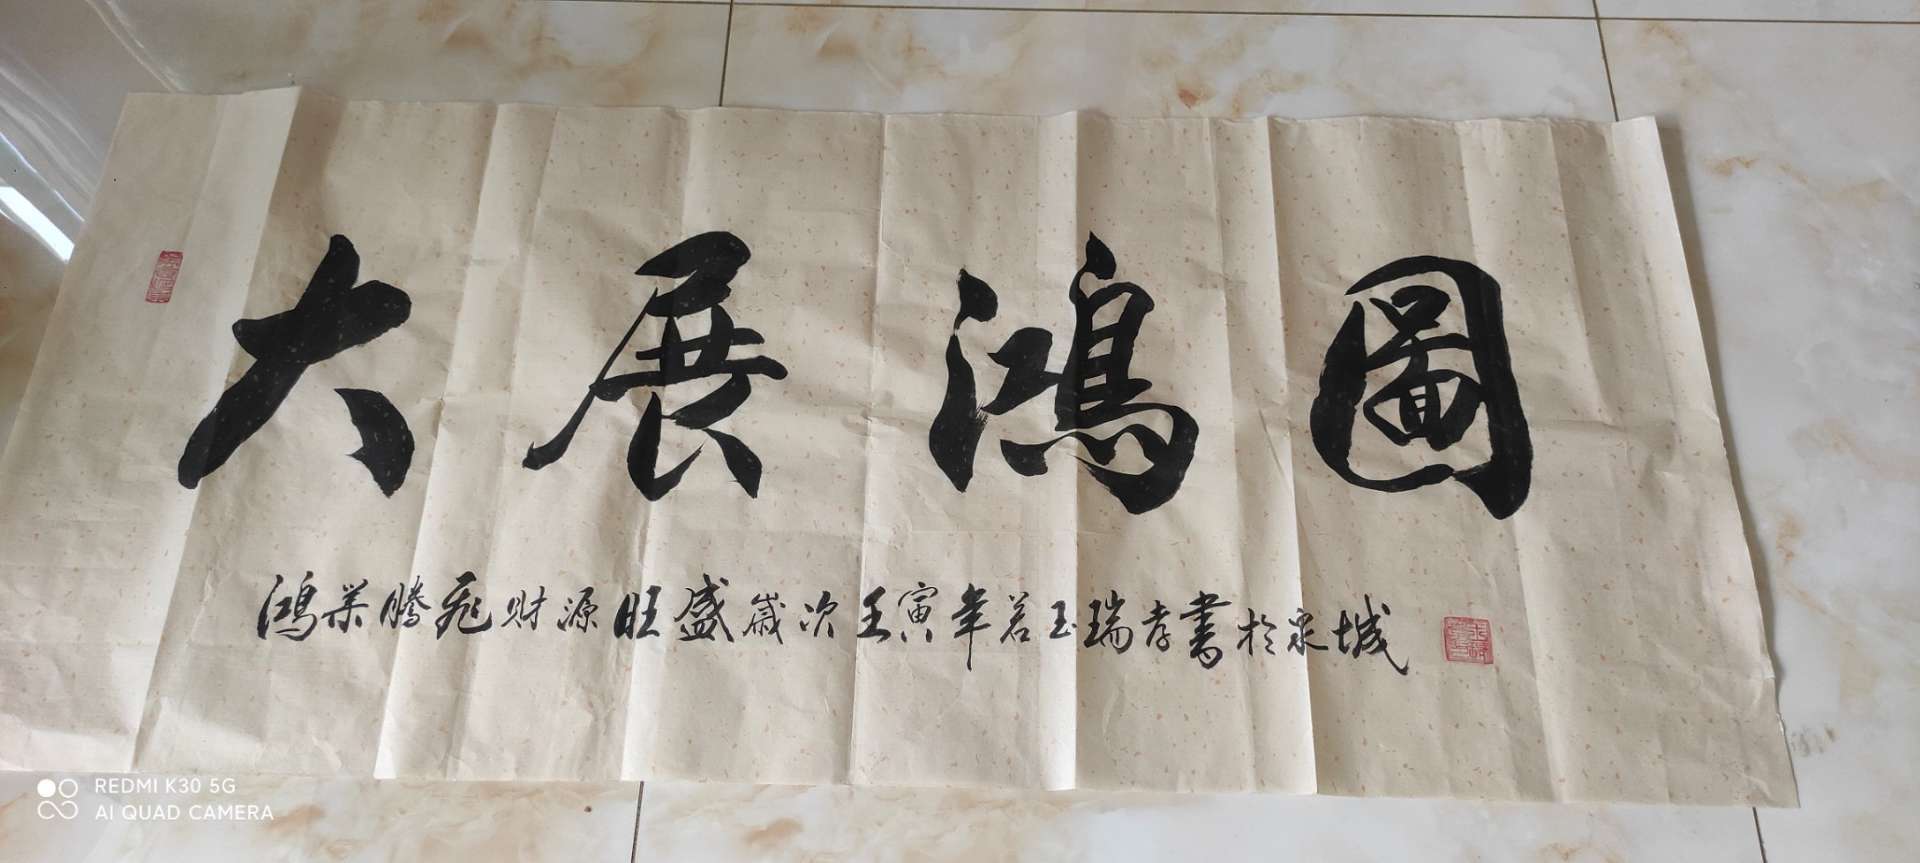 大展鴻圖
鴻業騰飛财源旺盛歲次壬寅年若玉瑞孝書於泉城
REDMI K30 5G
AI QUAD CAMERA